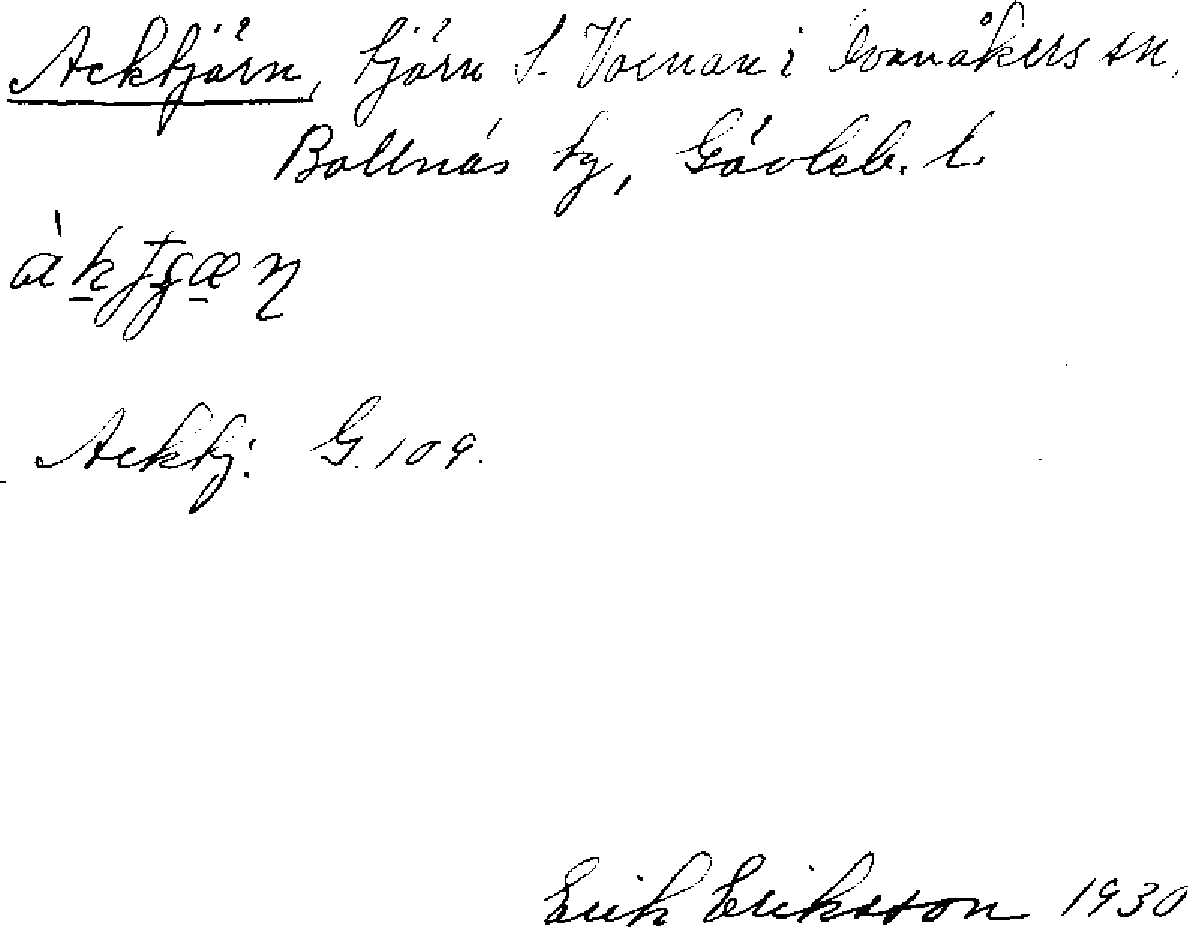 Acktjärn, tjärn S. Voxnan i Ovanåkers sn,
Bollnäs tg, Gävleb. l.
Acktj: G. 109.
Erik Eriksson 1930